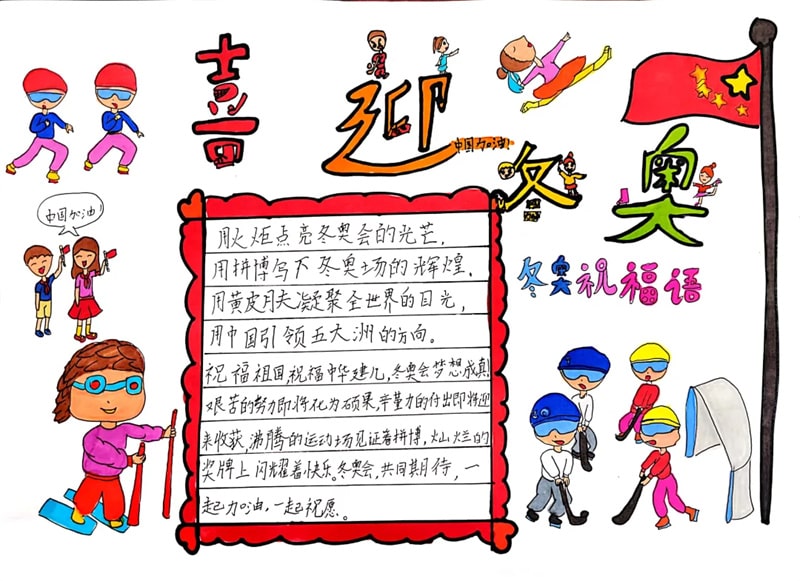 喜迎冬奥
中国加油!
中国加油!
冬奥祝福语
用火炬点亮冬奥会的光芒,
用拼搏写下冬奥场的辉煌,
用黄皮肤凝聚全世界的目光,
用中国引领五大洲的方向。
祝福祖国,祝福中华建儿,冬奥会梦想成真
艰苦的努力即将化为硕果,辛勤力的付出即将迎
来收获,沸腾的运动场见证着拼博,灿烂的
奖牌上闪耀着快乐。冬奥会,共同期待,一
起加油,一起祝愿。